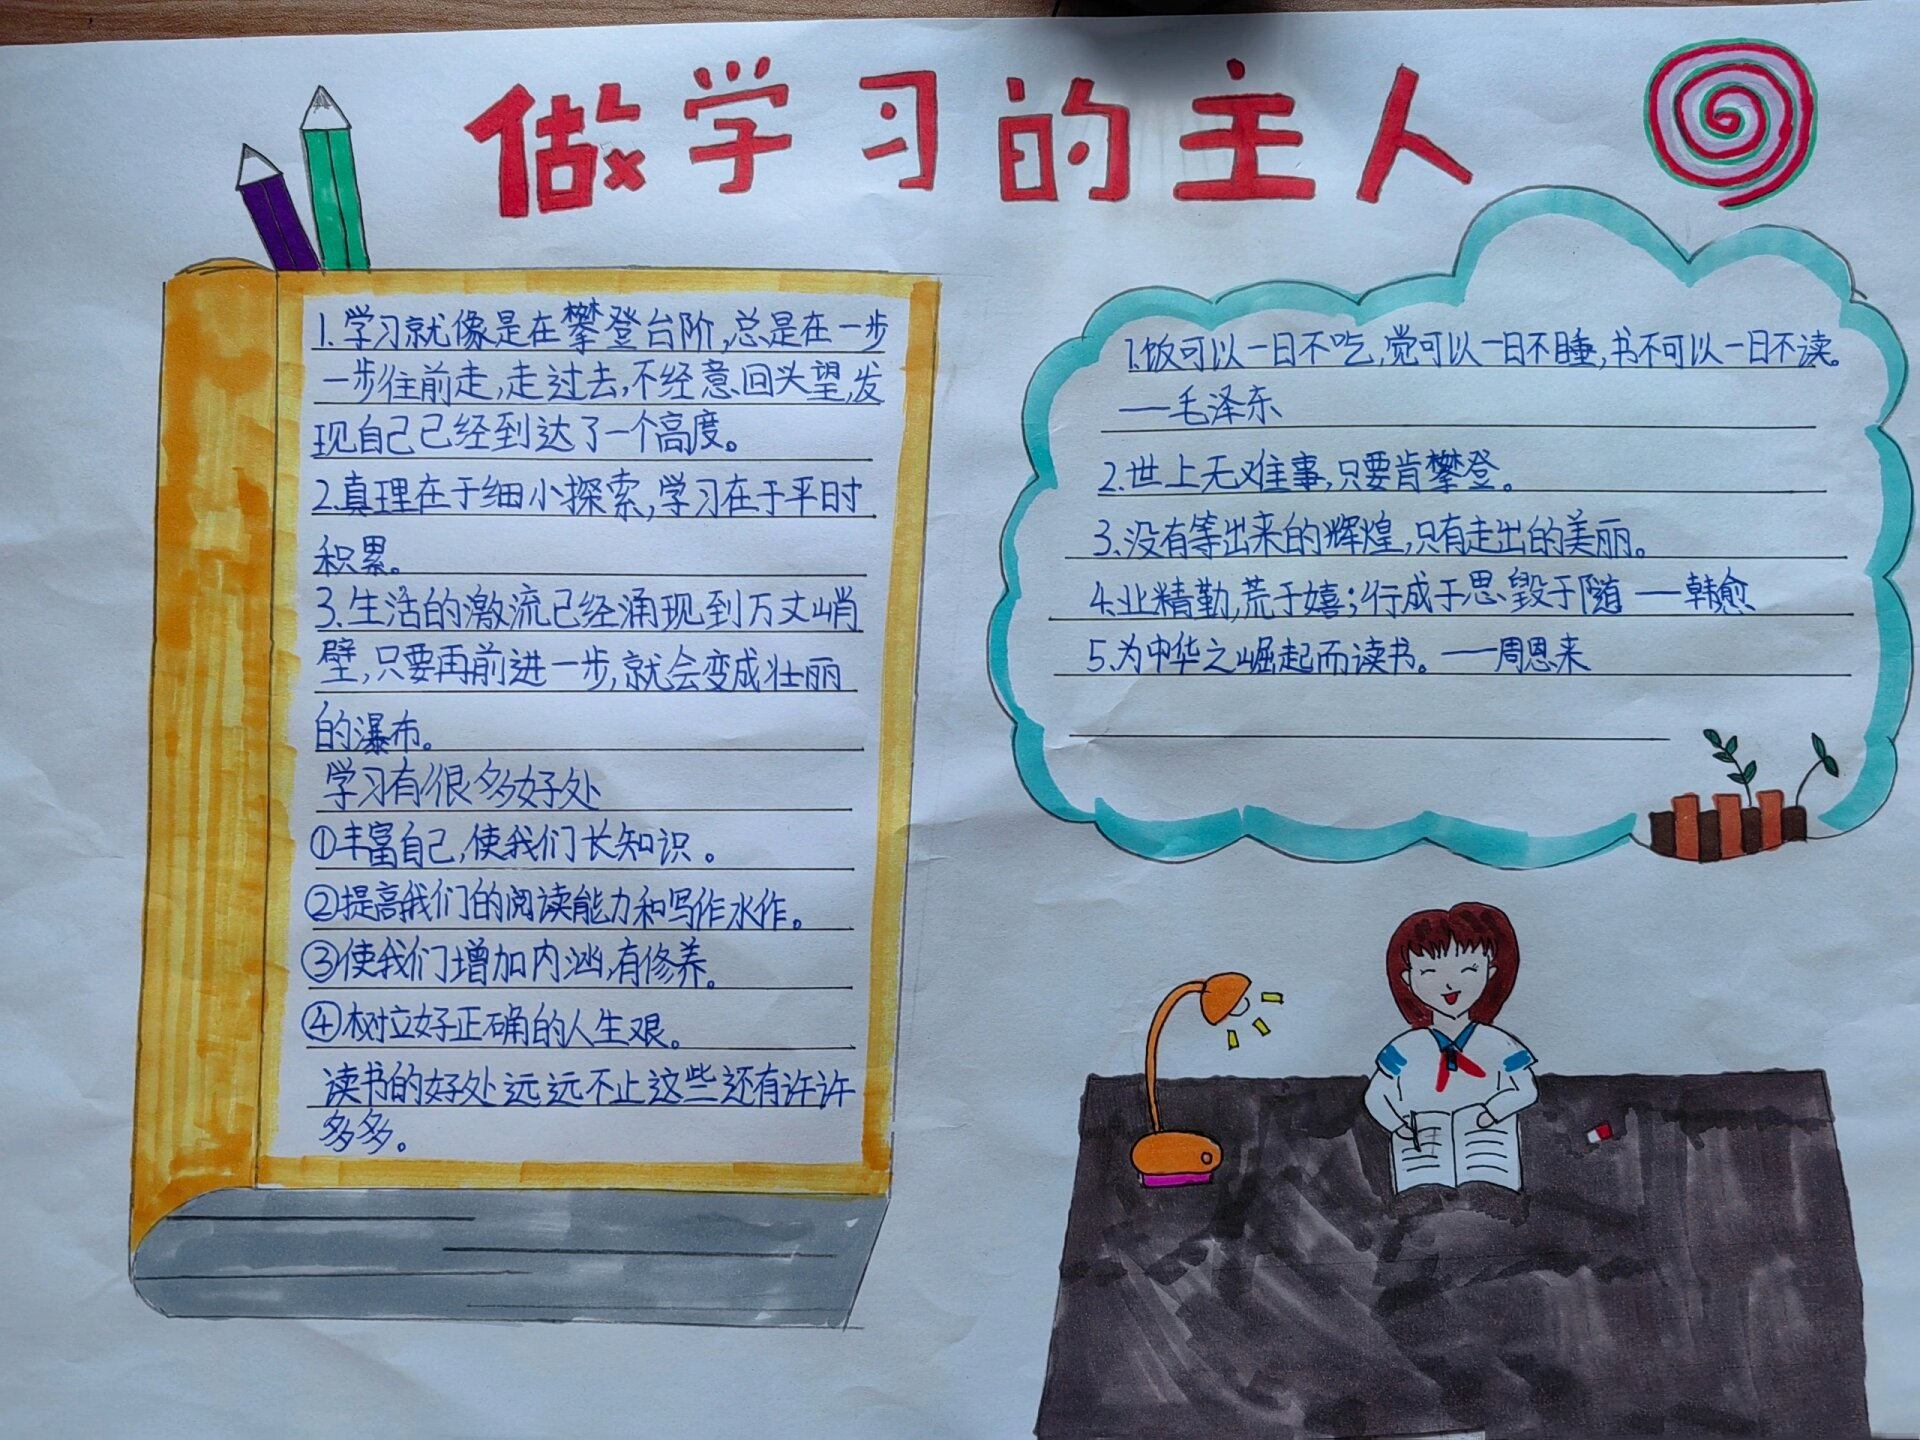 做学习的主人
1.学习就像是在攀登台阶,总是在一步
一步往前走,走过去,不经意回头望,发
现自己已经到达了一个高度。
2.真理在于细小探索,学习在于平时
积累。
3.生活的激流已经涌现到万丈峭
壁,只要再前进一步,就会变成壮丽
的瀑布。
学习有很多好处
①丰富自己,使我们长知识。
②提高我们的阅读能力和写作水作。
③使我们增加内涵,有修养。
④树立好正确的人生观。
读书的好处远远不止这些还有许许
多多。
1.饭可以一日不吃,觉可以一日不睡,书不可以一日不读。
——毛泽东
2.世上无难事,只要肯攀登。
3.没有等出来的辉煌,只有走出的美丽。
4.业精勤,荒于嬉;行成于思毁于随 ——韩愈
5.为中华之崛起而读书。——周恩来